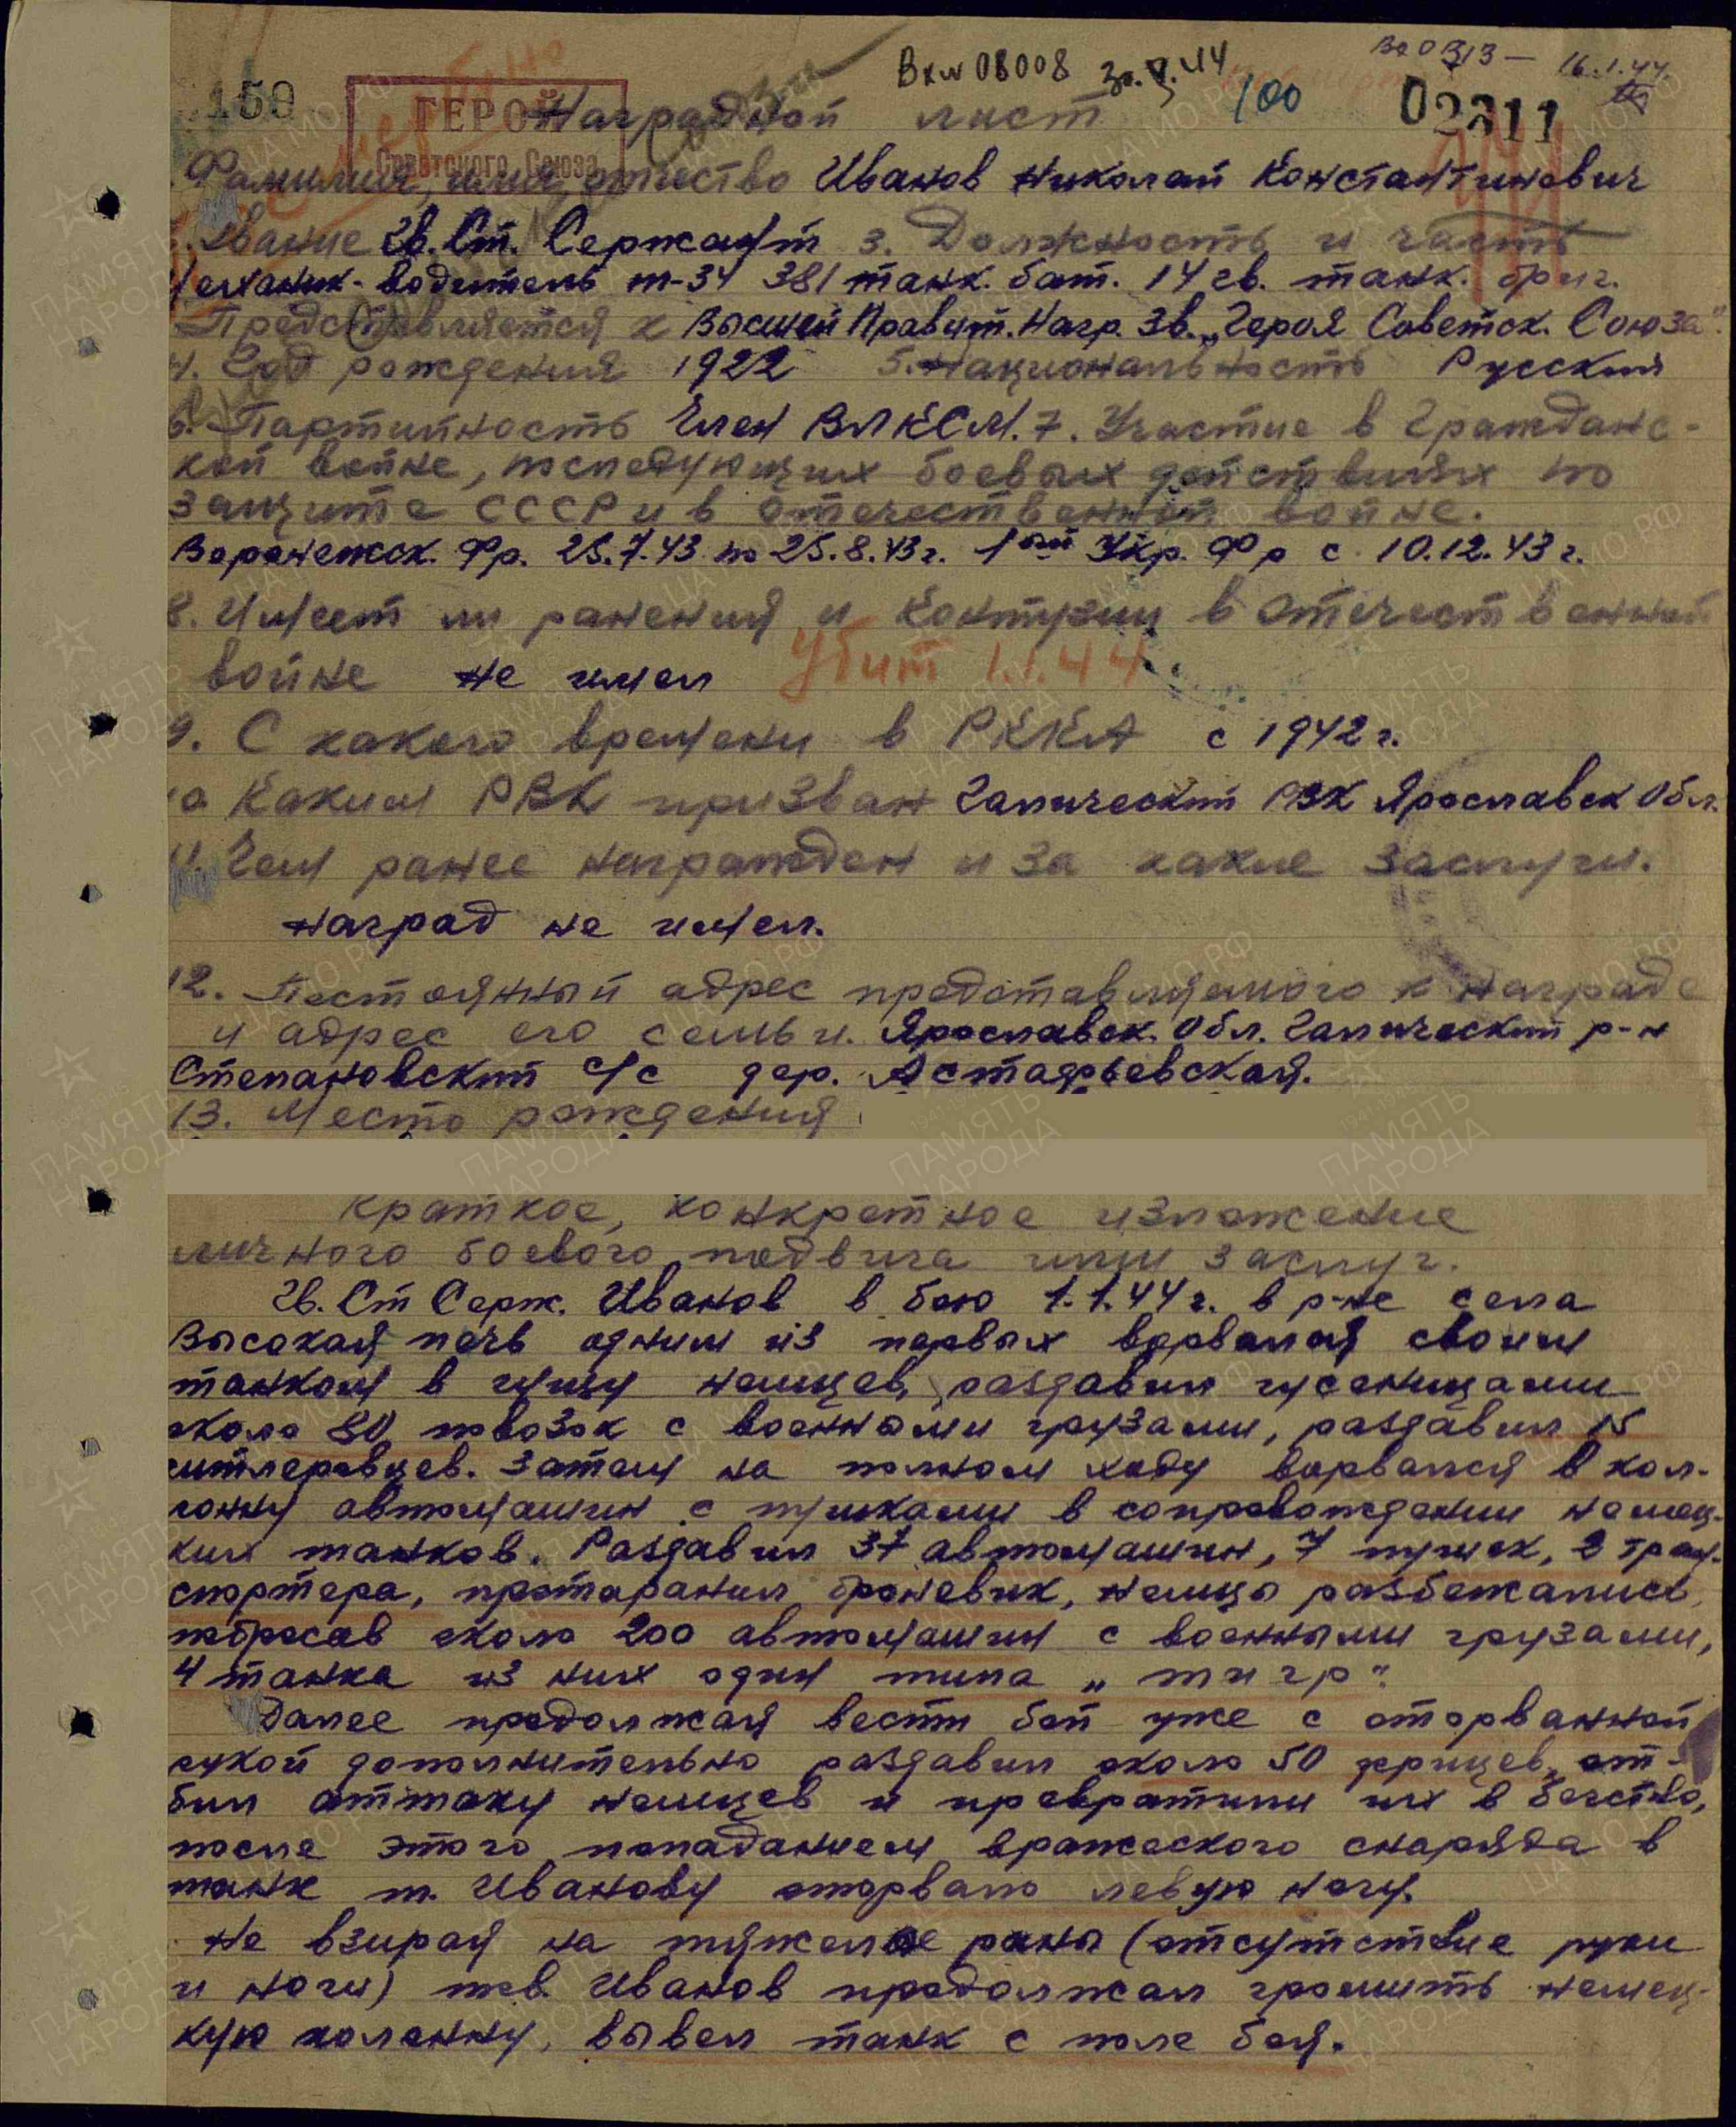 Вхм 08008 30.V.44
ВХ 0313 — 16.1.44.
150
100
02311
ГЕРОЙ
Советского Союза
Наградной лист
Фамилия, имя, отчество Иванов Николай Константинович
Звание Гв. Ст. Сержант 3. Должность и часть
Механик-водитель т-34 381 танк. бат. 14 гв. танк. бриг.
Представляется к Высшей Правит. Нагр. Зв. „Героя Советск. Союза".
4. Год рождения 1922 5. Национальность Русский
6. Партийность Член ВЛКСМ. 7. Участие в Гражданс-
кой войне, последующих боевых действиях по
защите СССР и в отечественной войне.
Воронежск. Фр. 25.7.43 по 25.8.43 г. 1ый Укр. Фр с 10.12.43 г.
8. Имеет ли ранения и контузии в отечественной
войне не имел
Убит 1.1.44
9. С какого времени в РККА с 1942 г.
10 Каким РВК призван Галический РВК Ярославск Обл.
11. Чем ранее награжден и за какие заслуги.
наград не имел.
12. Постоянный адрес представляемого к награде
и адрес его семьи. Ярославск. Обл. Галический р-н
Степановский с/с дер. Астафьевская.
13. Место рождения
Краткое, конкретное изложение
личного боевого подвига или заслуг.
Гв. Ст Серж. Иванов в бою 1.1.44 г. в р-не села
Высокая печь одним из первых ворвался своим
танком в гущу немцев, раздавил гусеницами
около 80 повозок с военными грузами, раздавил 15
гитлеровцев. Затем на полном ходу ворвался в кол-
лонну автомашин с пушками в сопровождении немец-
ких танков. Раздавил 37 автомашин, 7 пушек, 2 тран-
спортера, протаранил броневик, немцы разбежались,
побросав около 200 автомашин с военными грузами,
4 танка из них один типа „тигр".
Далее продолжая вести бой уже с оторванной
рукой дополнительно раздавил около 50 фрицев, от-
бил аттаку немцев и превратили их в бегство,
после этого попаданием вражеского снаряда в
танк т. Иванову оторвало левую ногу.
Не взирая на тяжелые раны (отсутствие руки
и ноги) тов. Иванов продолжал громить немец-
кую коленну, вывел танк с поле боя.